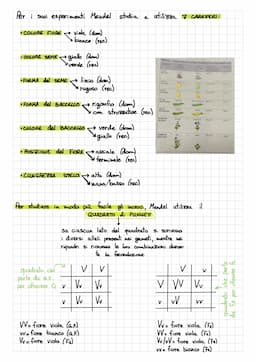 Per i suoi esperimenti Mendel studia e utilizza 7 CARATTERI
• COLORE FIORE → viola (dom)
→ bianco (rec)
• COLORE SEME → giallo (dom)
→ verde (rec)
• FORMA del SEME → liscio (dom)
→ rugoso (rec)
• FORMA del BACCELLO → rigonfio (dom)
→ con strozzature (rec)
• COLORE del BACCELLO → verde (dom)
→ giallo (rec)
• POSIZIONE del FIORE → assiale (dom)
→ terminale (rec)
• LUNGHEZZA STELO → alto (dom)
→ nano/basso (rec)
Per studiare in modo più facile gli incroci, Mendel utilizza il
QUADRATO di PUNNETT
Su ciascun lato del quadrato si scrivono
i diversi alleli presenti nei gameti, mentre nei
riquadri si scrivono le loro combinazioni durante
la fecondazione
quadrato che
parte da
per ottenere F1
V V
v Vv Vv
v Vv Vv
V v
V VV Vv
v Vv vv
quadrato che parte
da F1 per ottenere F2
VV= fiore viola
vv= fiore bianco
Vv= fiore viola (F1)
VV= fiore viola (F2)
Vv= fiore viola (F2)
vv= fiore bianco (F2)